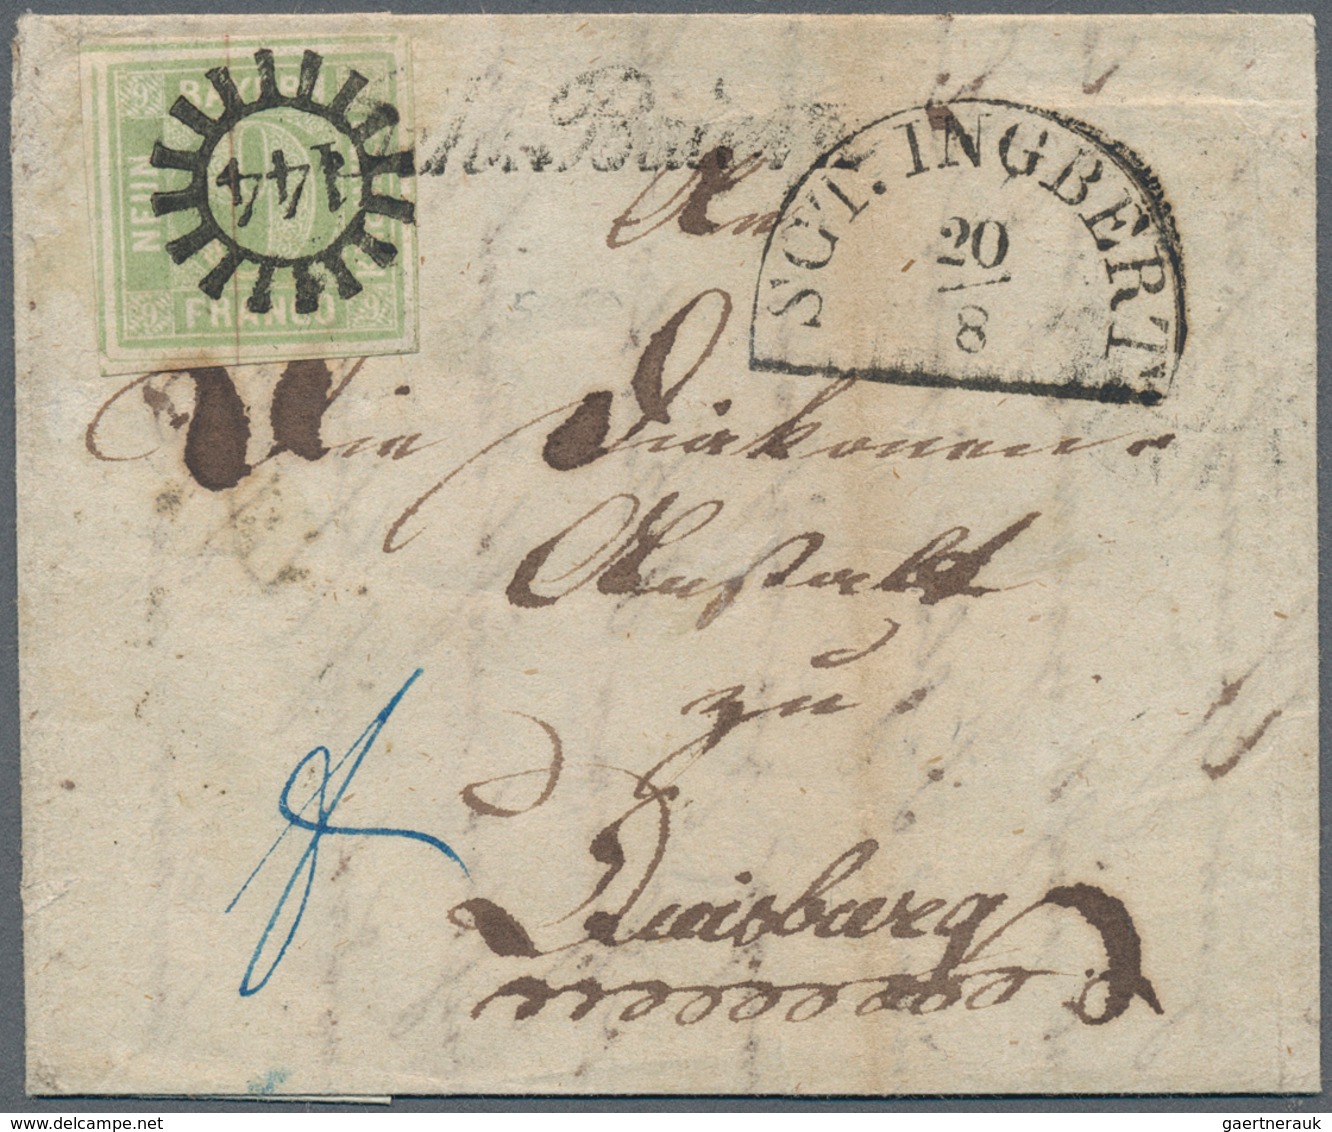 BAYERN
NEUN
144
FRANCO
SCT. INGBERT
20
8
An
Die Diakonen-
Anstalt
zu
Duisburg
gaertnerauk / www.delcampe.net